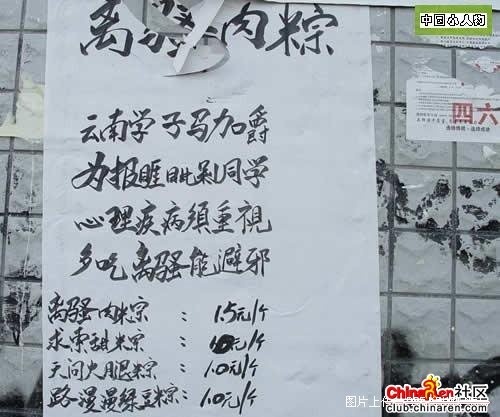 离骚肉粽
云南学子马加爵
为报睚眦同学
心理疾病須重視
多吃离骚能避邪
离骚肉粽 : 1.5元/个
求索甜粽 : 元/个
天问火腿粽 : 1.0元/个
路漫漫綠豆粽: 1.0元/个
四六
图片上
ChinaRen社区
club.chinaren.com